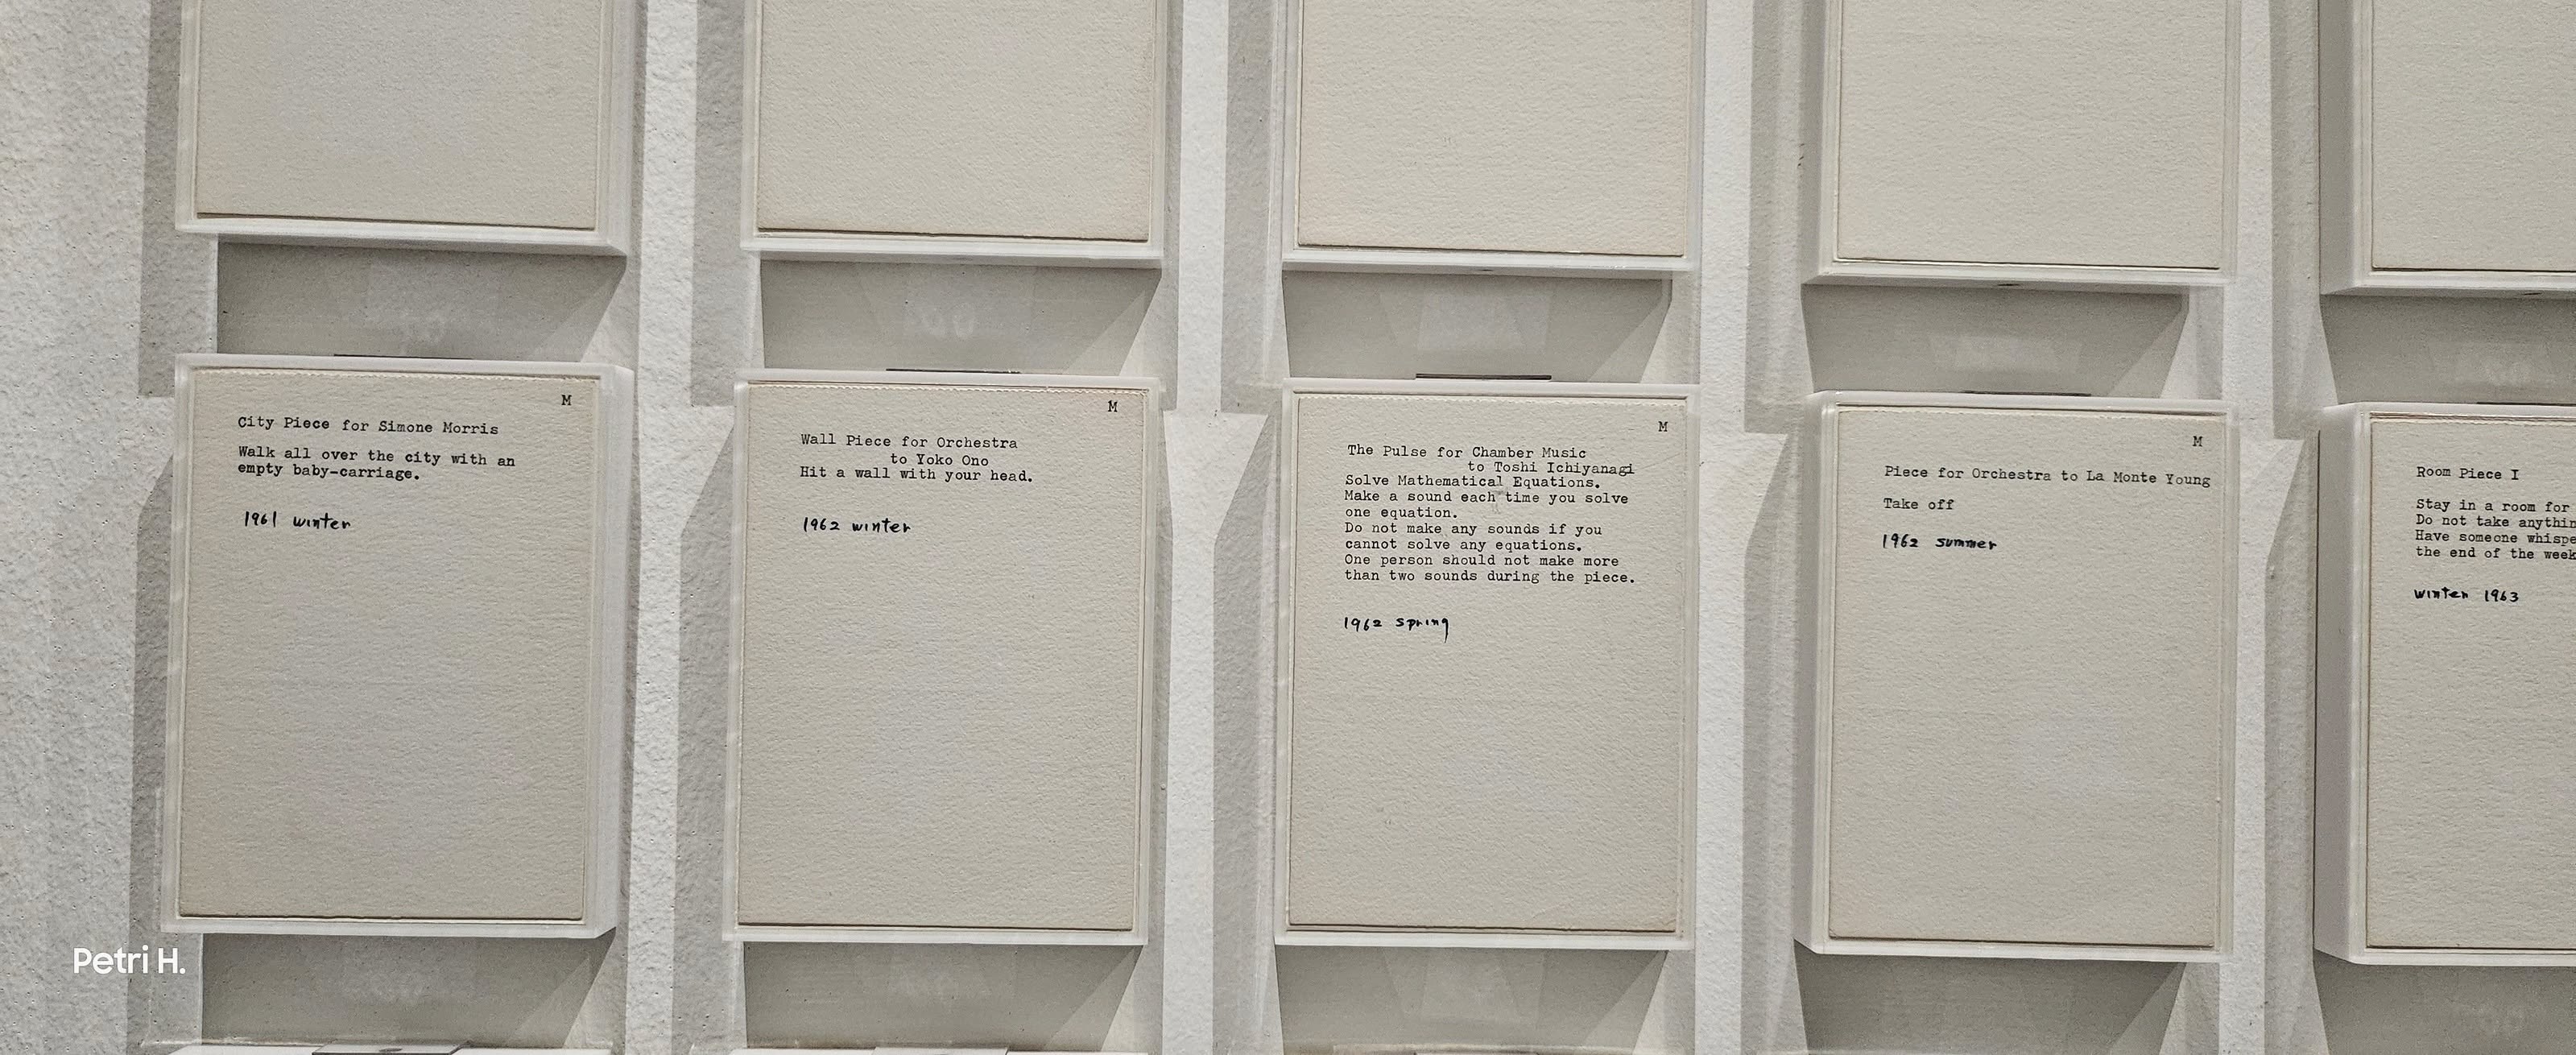 M
City Piece for Simone Morris
Walk all over the city with an
empty baby-carriage.
1961 winter
M
Wall Piece for Orchestra
to Yoko Ono
Hit a wall with your head.
1962 winter
M
The Pulse for Chamber Music
to Toshi Ichiyanagi
Solve Mathematical Equations.
Make a sound each time you solve
one equation.
Do not make any sounds if you
cannot solve any equations.
One person should not make more
than two sounds during the piece.
1962 spring
M
Piece for Orchestra to La Monte Young
Take off
1962 summer
Room Piece I
Stay in a room for
Do not take
Have someone
the end of the week
winter 1963
Petri H.